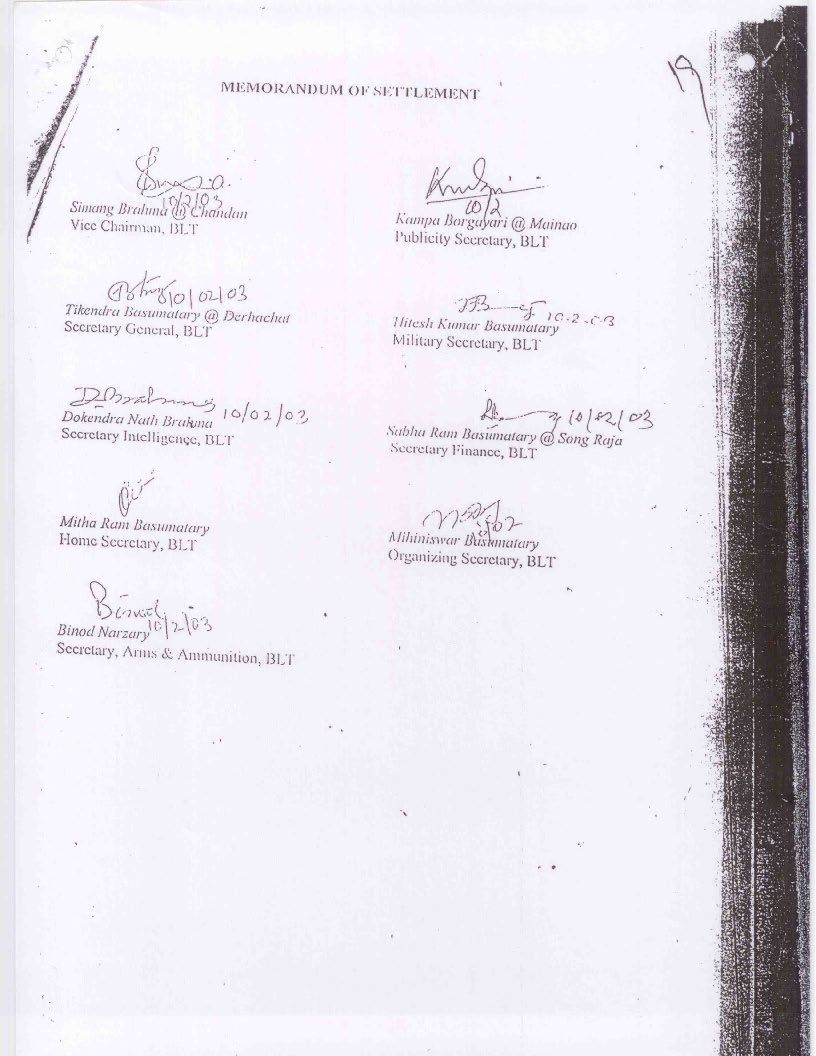 19
MEMORANDUM OF SETTLEMENT
10/2/03
Simang Brahma @ Chandan
Vice Chairman, BLT
10/2
Kampa Borgayari @ Mainao
Publicity Secretary, BLT
10/02/03
Tikendra Basumatary @ Derhachat
Secretary General, BLT
10.2.03
Hitesh Kumar Basumatary
Military Secretary, BLT
DBrahma
Dokendra Nath Brahma 10/02/03
Secretary Intelligence, BLT
10/02/03
Sabha Ram Basumatary @ Song Raja
Secretary Finance, BLT
Mitha Ram Basumatary
Home Secretary, BLT
Mihiniswar Basumatary
Organizing Secretary, BLT
Binod
Binod Narzary 10/2/03
Secretary, Arms & Ammunition, BLT